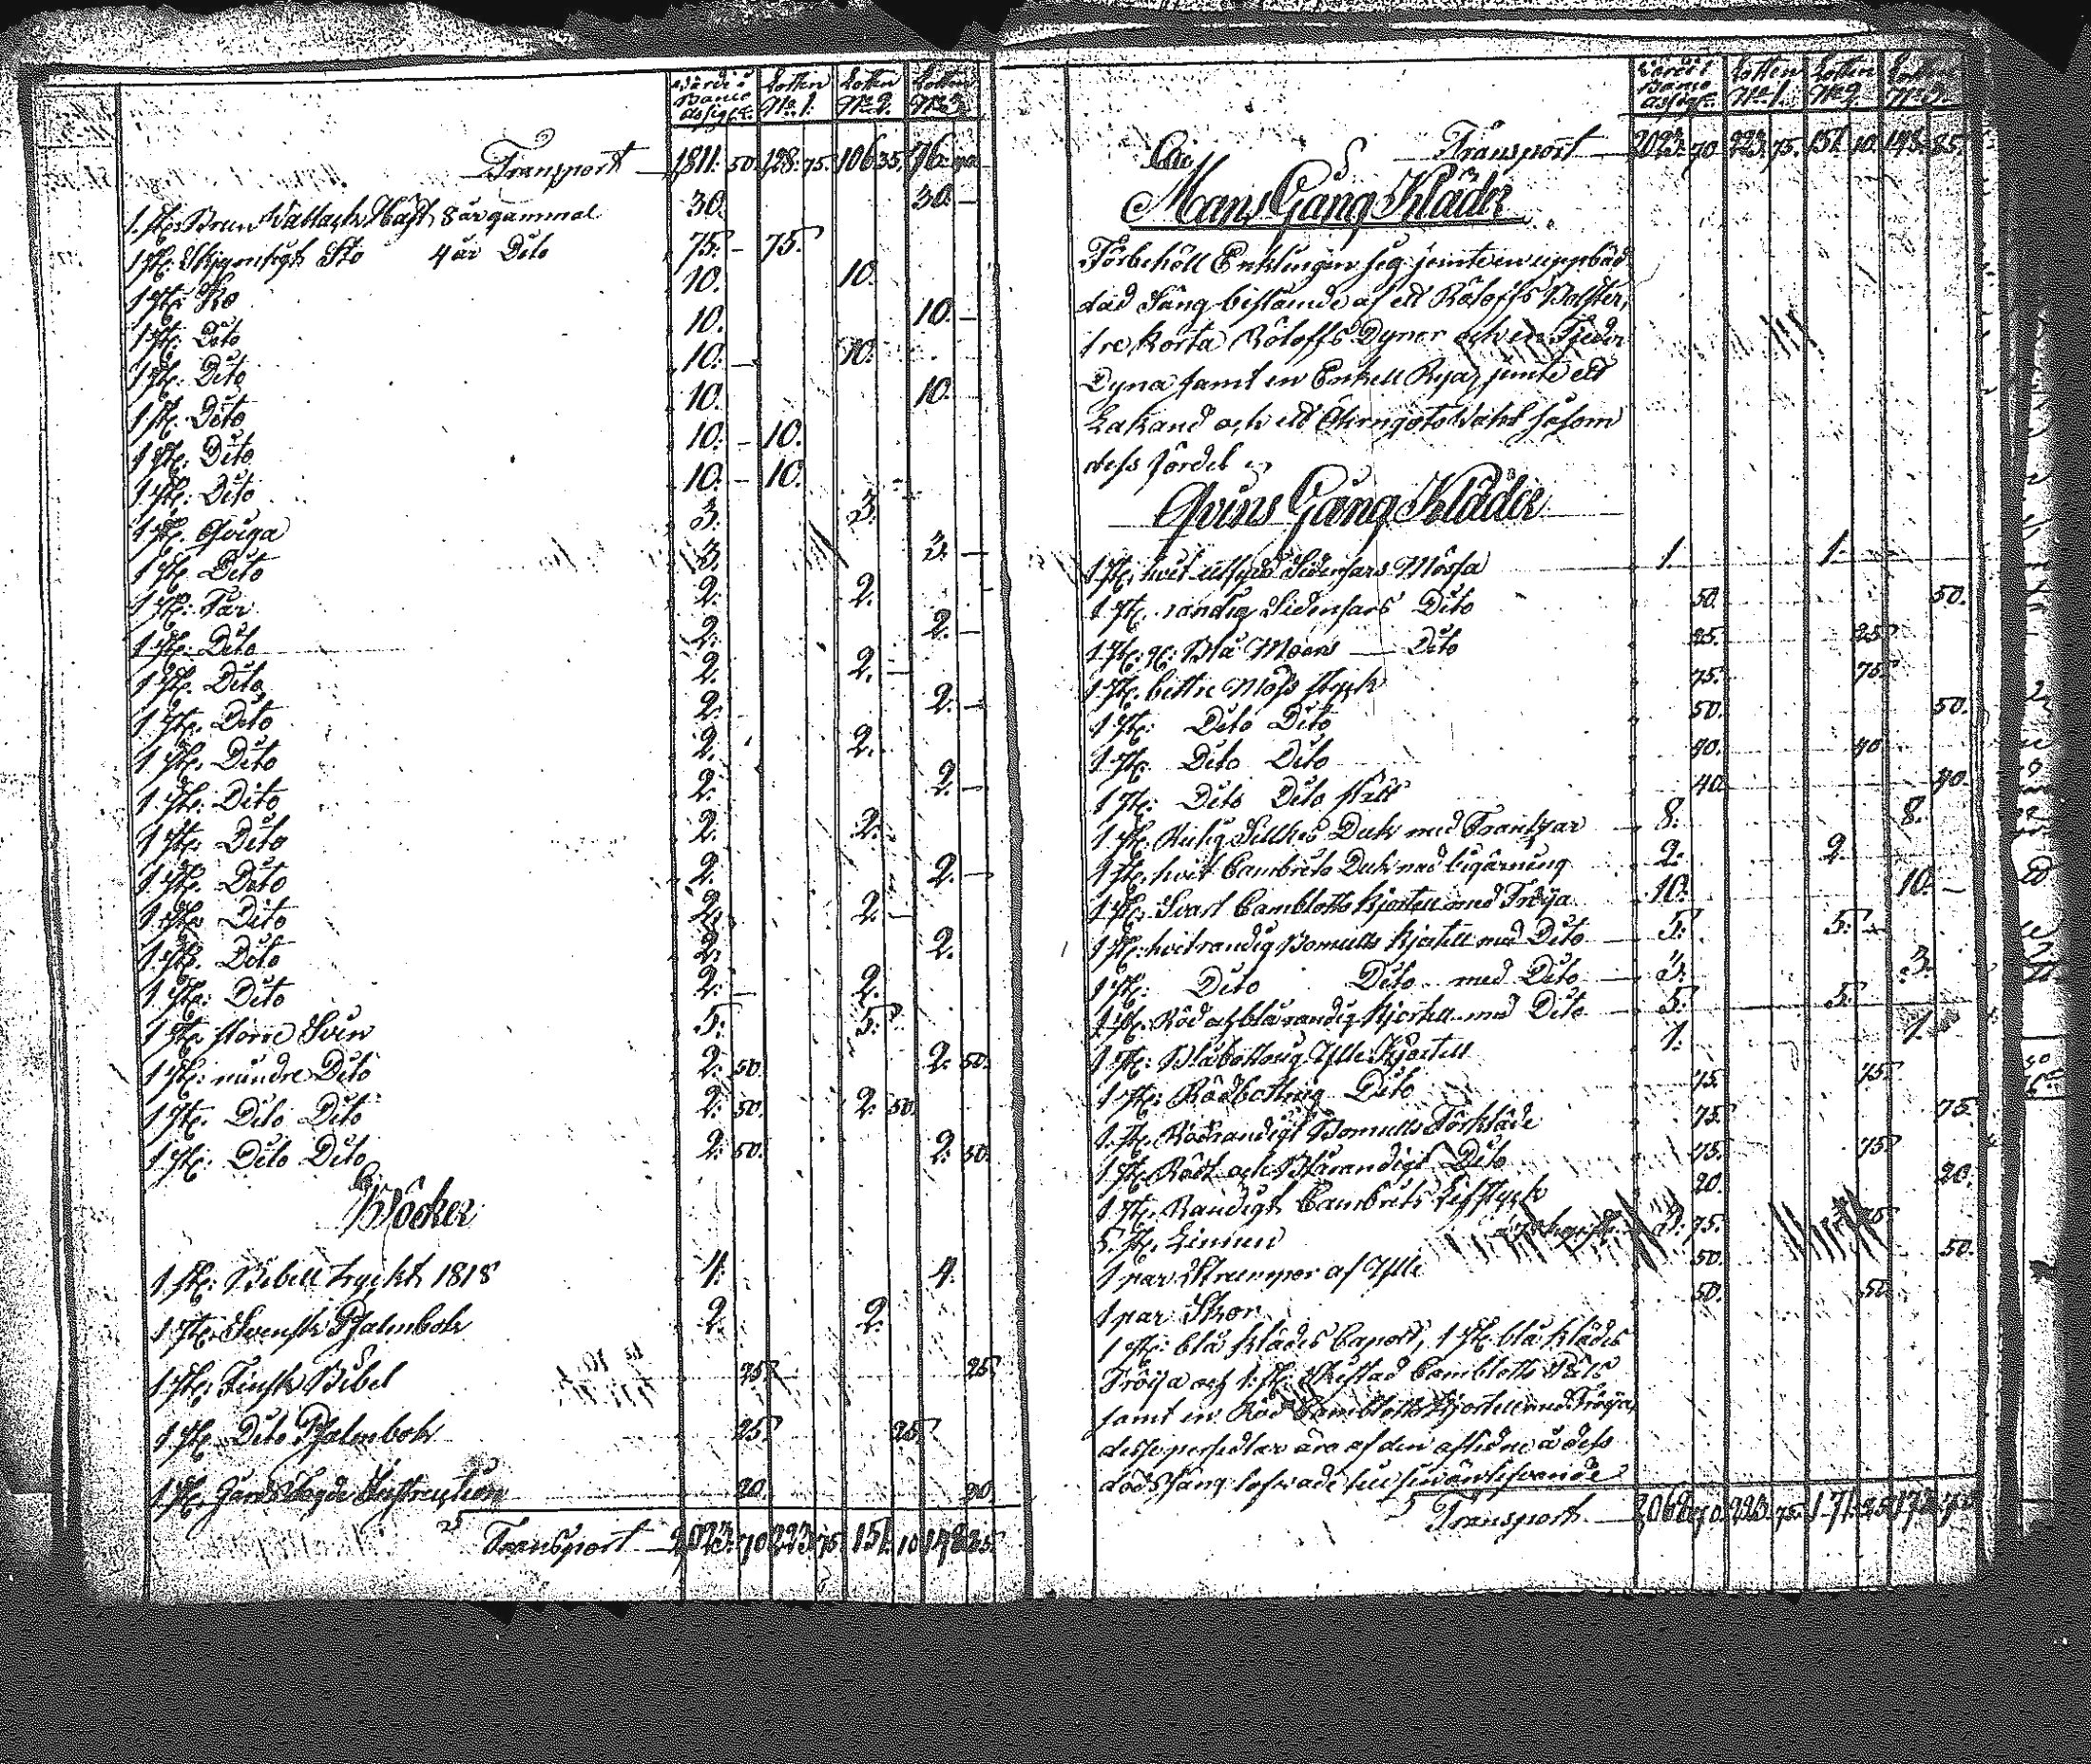 Värde i Banco Assign: Lotten No 1. Lotten No 2. Lotten No 3.
Transport 1811. 50. 128. 75. 106. 35. 76.
1 st: Brun Wallack Häst 8 år gammal 30. 30. —
1 st: Sto 4 år Dito 75. — 75.
1 st: Ko 10. 10.
1 st: Dito 10. 10. —
1 st: Dito 10. — 10.
1 st: Dito 10. 10.
1 st: Dito 10. — 10.
1 st: Dito 10. — 10.
1 st: Qviga 3. 3.
1 st: Dito 3. 3. —
1 st: Får 2. 2.
1 st: Dito 2. 2. —
1 st: Dito 2. 2. —
1 st: Dito 2. 2. —
1 st: Dito 2. 2.
1 st: Dito 2. 2. —
1 st: Dito 2. 2.
1 st: Dito 2. 2. —
1 st: Dito 2. 2. —
1 st: Dito 2. 2.
1 st: Dito 2. — 2.
1 st: större Svin 5. 5.
1 st: mindre Dito 2. 50. 2. 50.
1 st: Dito Dito 2. 50. 2. 50.
1 st: Dito Dito 2. 50. 2. 50.
Böcker
1 st: Bibell tryckt 1818 4. 4.
1 st: Svensk Psalmbok 2. 2.
1 st: Finsk Bibel 25. 25.
1 st: Dito Psalmbok 25. 25.
1 st: 20. 20.
Transport 2023. 70 223. 75. 151. 10 148. 85.
Värde i Banco Assign: Lotten No 1. Lotten No 2. Lotten No 3.
Transport 2023. 70 223. 75. 151. 10. 148. 85.
Mans Gång Kläder
Förbehöll Enklingen sig jemte en uppbäd
dad Säng bestående af ett Råloffs Bolster,
tre korta Råloffs Dynor och en Fjeder
Dyna samt en Enkell Rya, jemte ett
Lakand och ett Örengots såsom
dess fördel
Qvins Gång Kläder
1 st: hvit utsydd Sidensars Mössa 1. 1.
1 st: randig Sidensars Dito 50. 50.
1 st: Blå Moors Dito 25. 25.
1 st: bettre Möss styck 75. 75.
1 st: Dito Dito 50. 50.
1 st: Dito Dito 40. 40.
1 st: Dito Dito slätt 40. 40.
1 st: Silkes Duk med Frantzar 8. 8.
1 st: hvit Cambrits Duk med 2. 2.
1 st: Svart Camblotts Kjortell med Tröya 10. 10. —
1 st: hvitrandig Bomulls Kjortell med Dito 5. 5. —
1 st: Dito Dito med Dito 3. 3.
1 st: Röd och blå randig Kjortell med Dito 5. 5.
1 st: Blåbottnig Ylle Kjortell 1. 1.
1 st: Rödbottnig Dito 75. 75.
1 st: Rödrandigt Bomulls Förkläde 75. 75.
1 st: Rödt och Blårandigt Dito 75. 75.
1 st: Randigt Cambrits Lifstyck 20. 20.
5 st: Linnen 3. 75.
1 par Strumpor af Ylle 50. 50.
1 par Skor 50. 50.
1 st: blå Klädes Capott, 1 st: blå Klädes
Tröija och 1 st: Camblotts
samt en Röd Camblotts Kjortell med Tröija,
desse persedlar äro af den aflidne å dess
dödssäng lofvade till
Transport 2062. 70. 223. 75. 171.